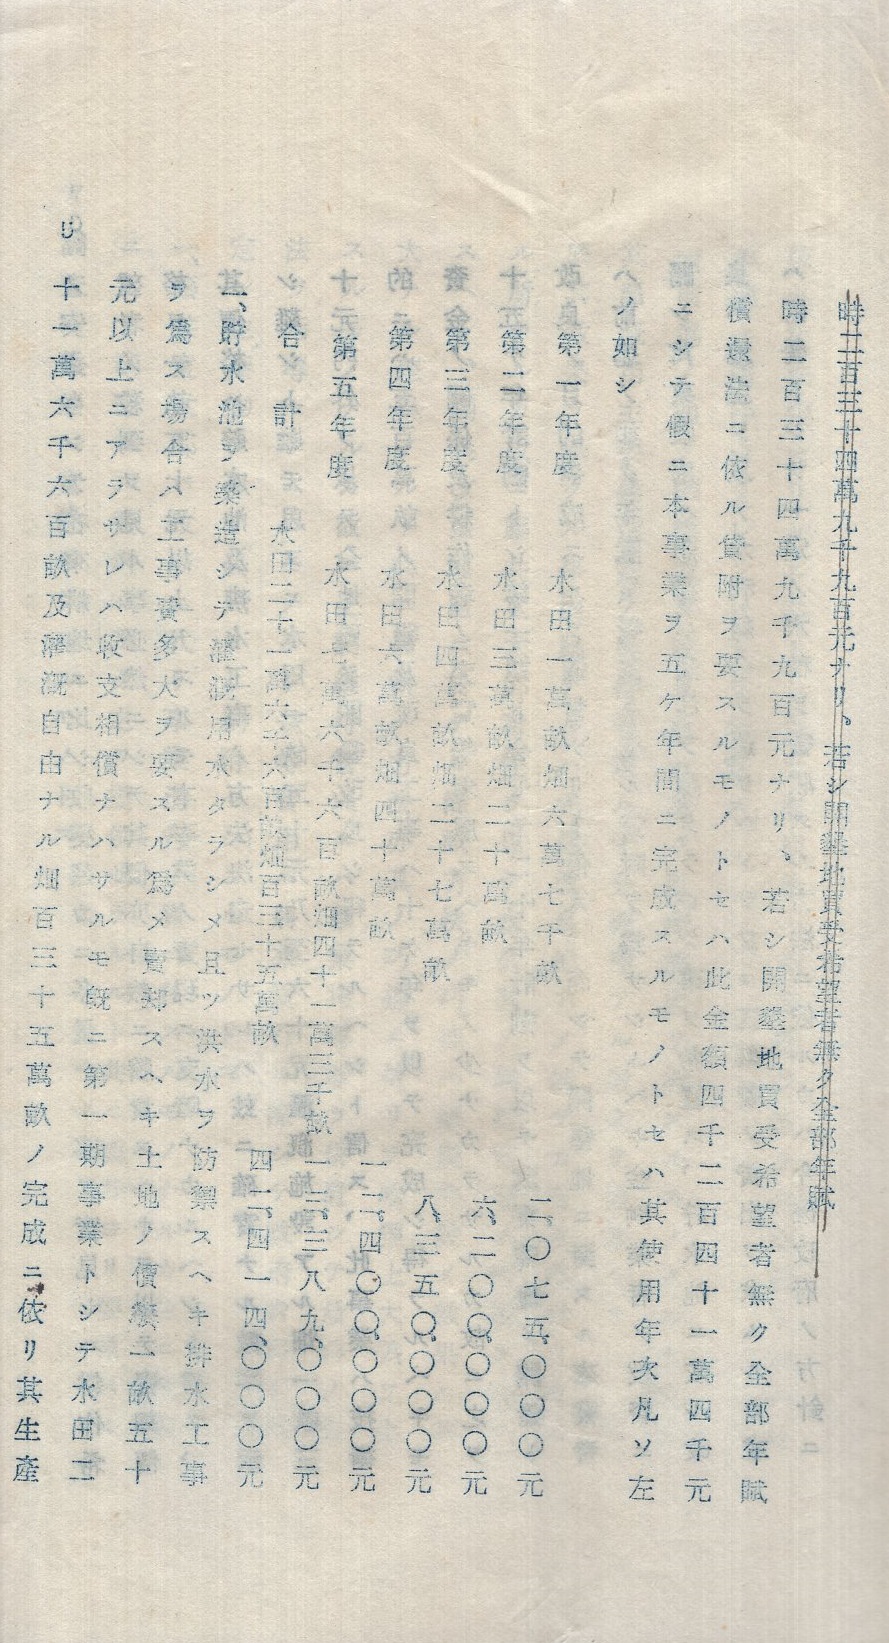 時二百三十四萬九千九百元ナリ、若シ開墾地買受希望者無ク全部年賦
時二百三十四萬九千九百元ナリ、若シ開墾地買受希望者無ク全部年賦
償還法ニ依ル貸附ヲ要スルモノトセハ此金額四千二百四十一萬四千元
ニシテ假ニ本事業ヲ五ケ年間ニ完成スルモノトセハ其使用年次凡ソ左
ノ如シ
第一年度 水田一萬畝畑六萬七千畝 二、〇七五、〇〇〇元
第二年度 水田三萬畝畑二十萬畝 六、二〇〇、〇〇〇元
第三年度 水田四萬畝畑二十七萬畝 八、三五〇、〇〇〇元
第四年度 水田六萬畝畑四十萬畝 一二、四〇〇、〇〇〇元
第五年度 水田七萬六千六百畝畑四十一萬三千畝 一三、三八九、〇〇〇元
合計 水田二十一萬六千六百畝畑百三十五萬畝 四二、四一四、〇〇〇元
一、貯水池ヲ築造シテ灌漑用水タラシメ且ツ洪水ヲ防禦スヘキ排水工事
ヲ爲ス場合ハ工事費多大ヲ要スル爲メ賣却スヘキ土地ノ價格一畝五十
元以上ニアラサレハ收支相償ナハサルモ旣ニ第一期事業トシテ水田二
十一萬六千六百畝及灌漑自由ナル畑百三十五萬畝ノ完成ニ依リ其生產